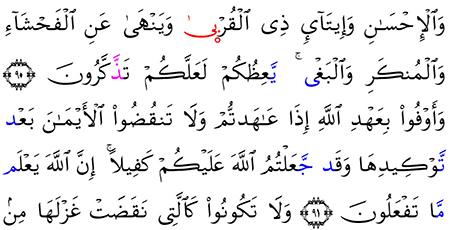 وَٱلْإِحْسَٰنِ وَإِيتَآئِ ذِى ٱلْقُرْبىٰ وَيَنْهَىٰ عَنِ ٱلْفَحْشَآءِ
وَٱلْمُنكَرِ وَٱلْبَغْىِ ۚ يَّعِظُكُمْ لَعَلَّكُمْ تَذَّكَّرُونَ ٩٠
وَأَوْفُوا۟ بِعَهْدِ ٱللَّهِ إِذَا عَٰهَدتُّمْ وَلَا تَنقُضُوا۟ ٱلْأَيْمَٰنَ بَعْد
تَّوْكِيدِهَا وَقَد جَّعَلْتُمُ ٱللَّهَ عَلَيْكُمْ كَفِيلًا ۚ إِنَّ ٱللَّهَ يَعْلَم
مَّا تَفْعَلُونَ ٩١ وَلَا تَكُونُوا۟ كَٱلَّتِى نَقَضَتْ غَزْلَهَا مِنۢ